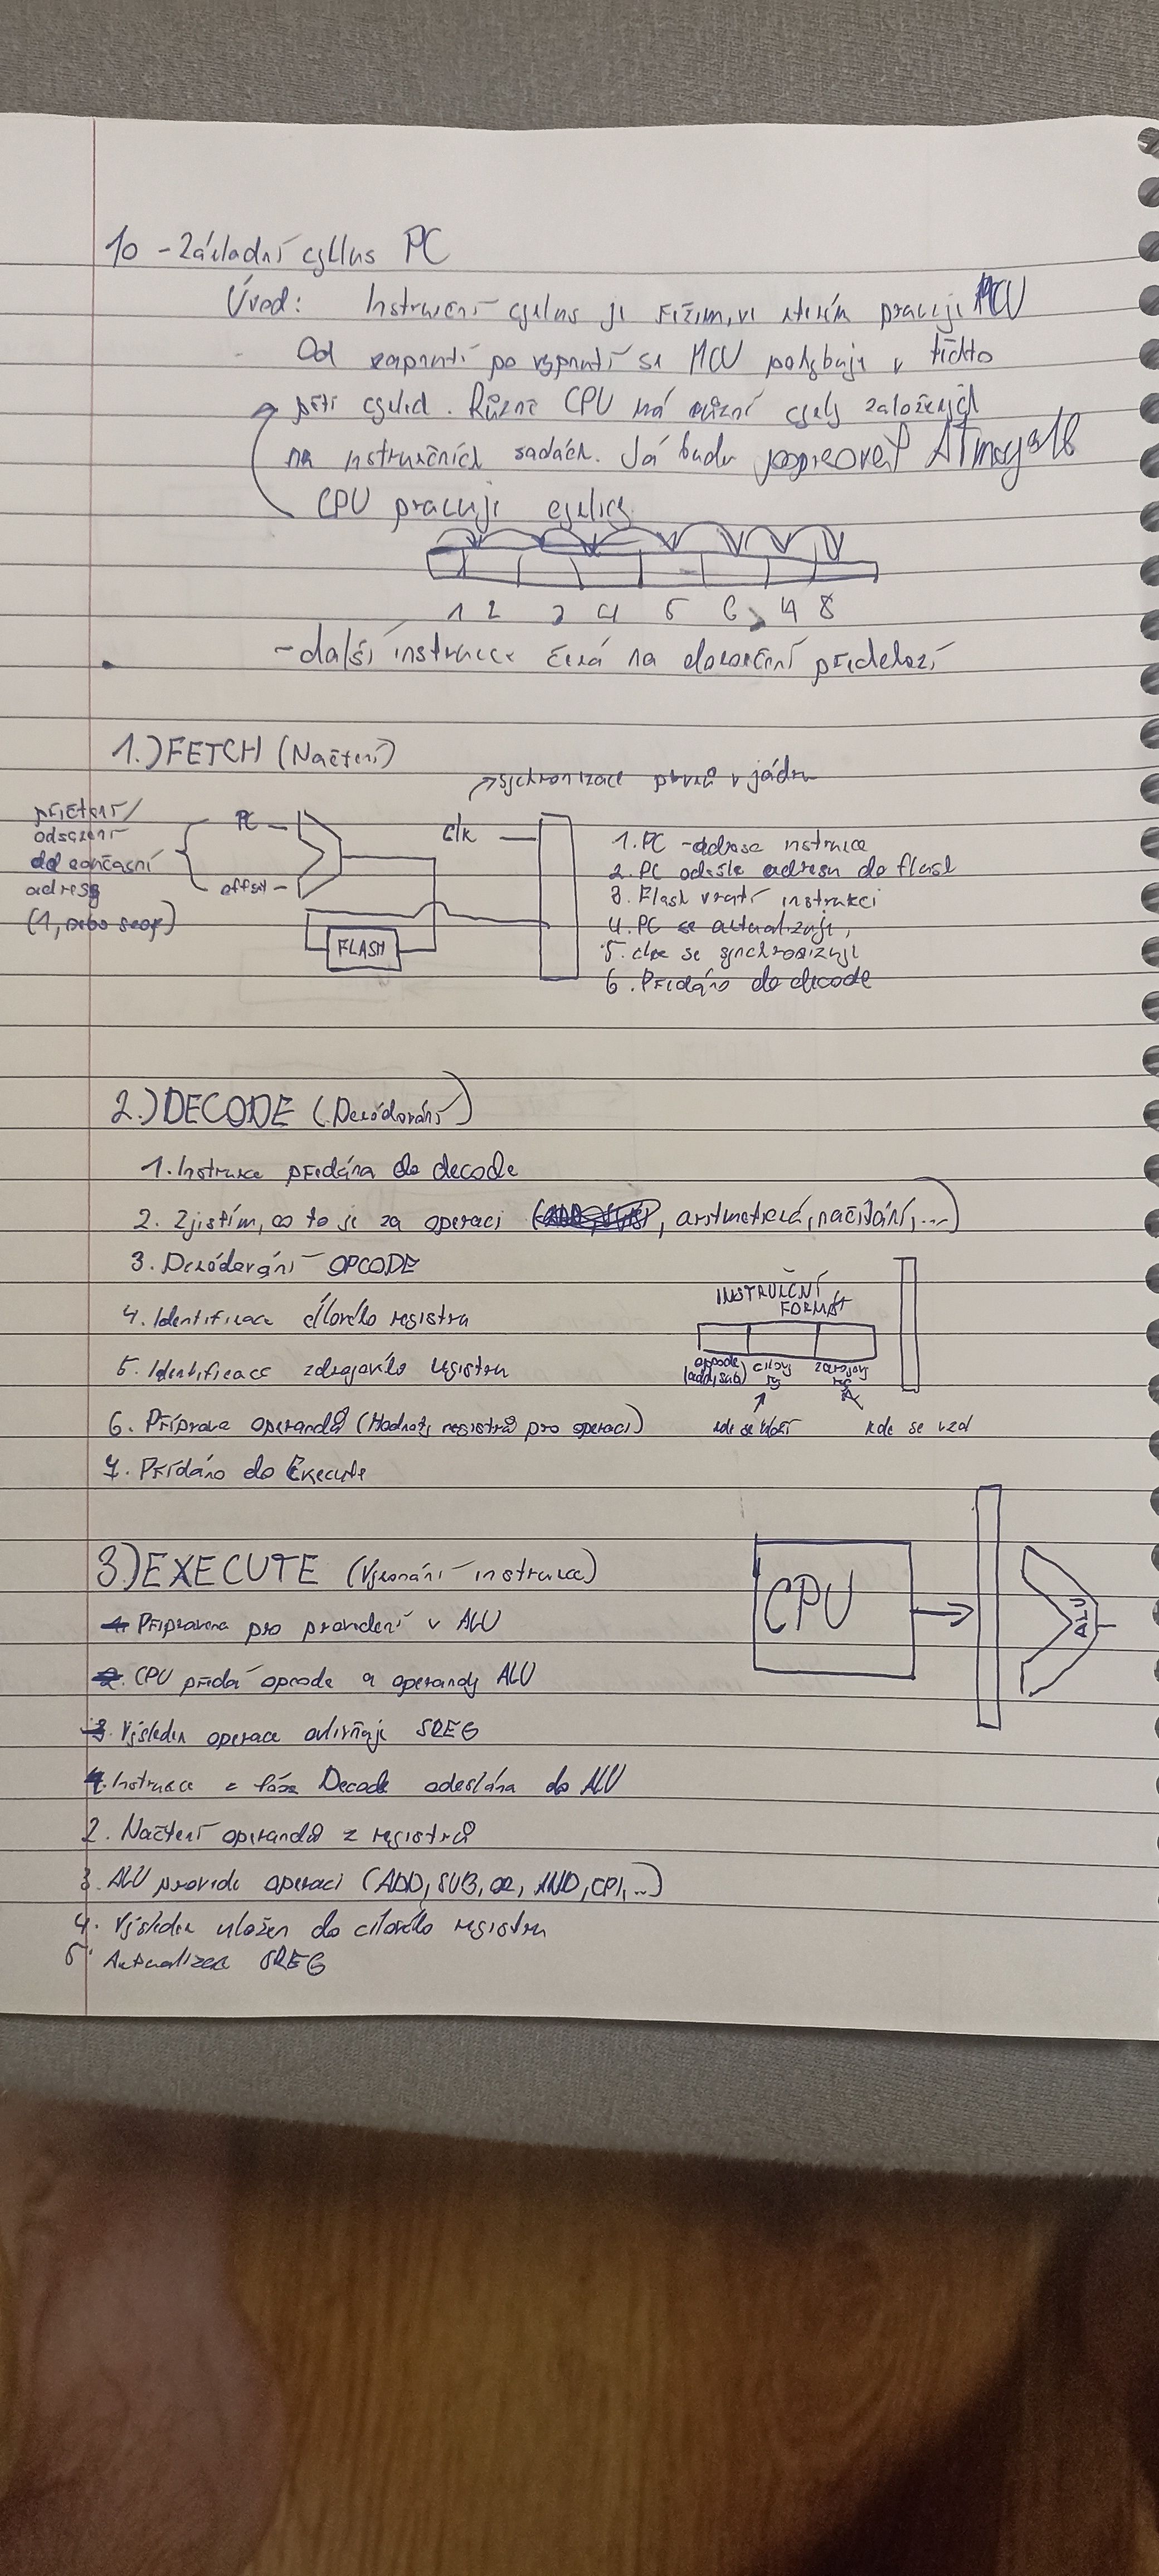 10 - Základní cyklus PC
Úvod: Instrukční cyklus je režim, ve kterém pracuje MCU
Od zapnutí po vypnutí se MCU pohybuje v těchto
pěti cyklech. Různé CPU má různé cykly založených
na instrukčních sadách. Já budu popisovat ATmega16
CPU pracuje cyklicky
1 2 3 4 5 6 7 8
- další instrukce čeká na dokončení předchozí
1.) FETCH (Načtení)
→ sychronizace prvků v jádru
přičtení/
odečtení
od současné
adresy
(1, nebo skok)
PC
offset
FLASH
clk
1. PC - adresa instrukce
2. PC odešle adresu do flash
3. Flash vrátí instrukci
4. PC se aktualizuje,
5. clk se synchronizuje
6. Předáno do decode
2.) DECODE (Dekódování)
1. Instrukce předána do decode
2. Zjistím, co to je za operaci ( , aritmetická, načítání, ...)
3. Dekódování OPCODE
4. Identifikace cílového registru
5. Identifikace zdrojového registru
6. Příprava operandů (Hodnoty registrů pro operaci)
7. Předáno do Execute
INSTRUKČNÍ
FORMÁT
opcode cílový zdrojový
(add, sub) reg reg
kde se vloží kde se vzal
3.) EXECUTE (Vykonání instrukce)
1. Připravena pro provedení v ALU
2. CPU předá opcode a operandy ALU
3. Výsledek operace ovlivňuje SREG
1. Instrukce z fáze Decode odeslána do ALU
2. Načtení operandů z registrů
3. ALU provede operaci (ADD, SUB, OR, AND, CPI, ...)
4. Výsledek uložen do cílového registru
5. Aktualizace SREG
CPU
ALU